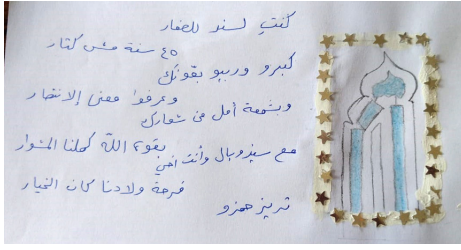 كنتِ لسند للصغار
٤٥ سنة مش كتار
كبرو وربيو بقوتك
وعرفوا معنى الإنتصار
وبشمعة أمل من شعارك
مع سيزوبال وأنت اختي
بقوة اللّه كملنا المشوار
فرحة ولادنا كان الخيار
تريز حمزو